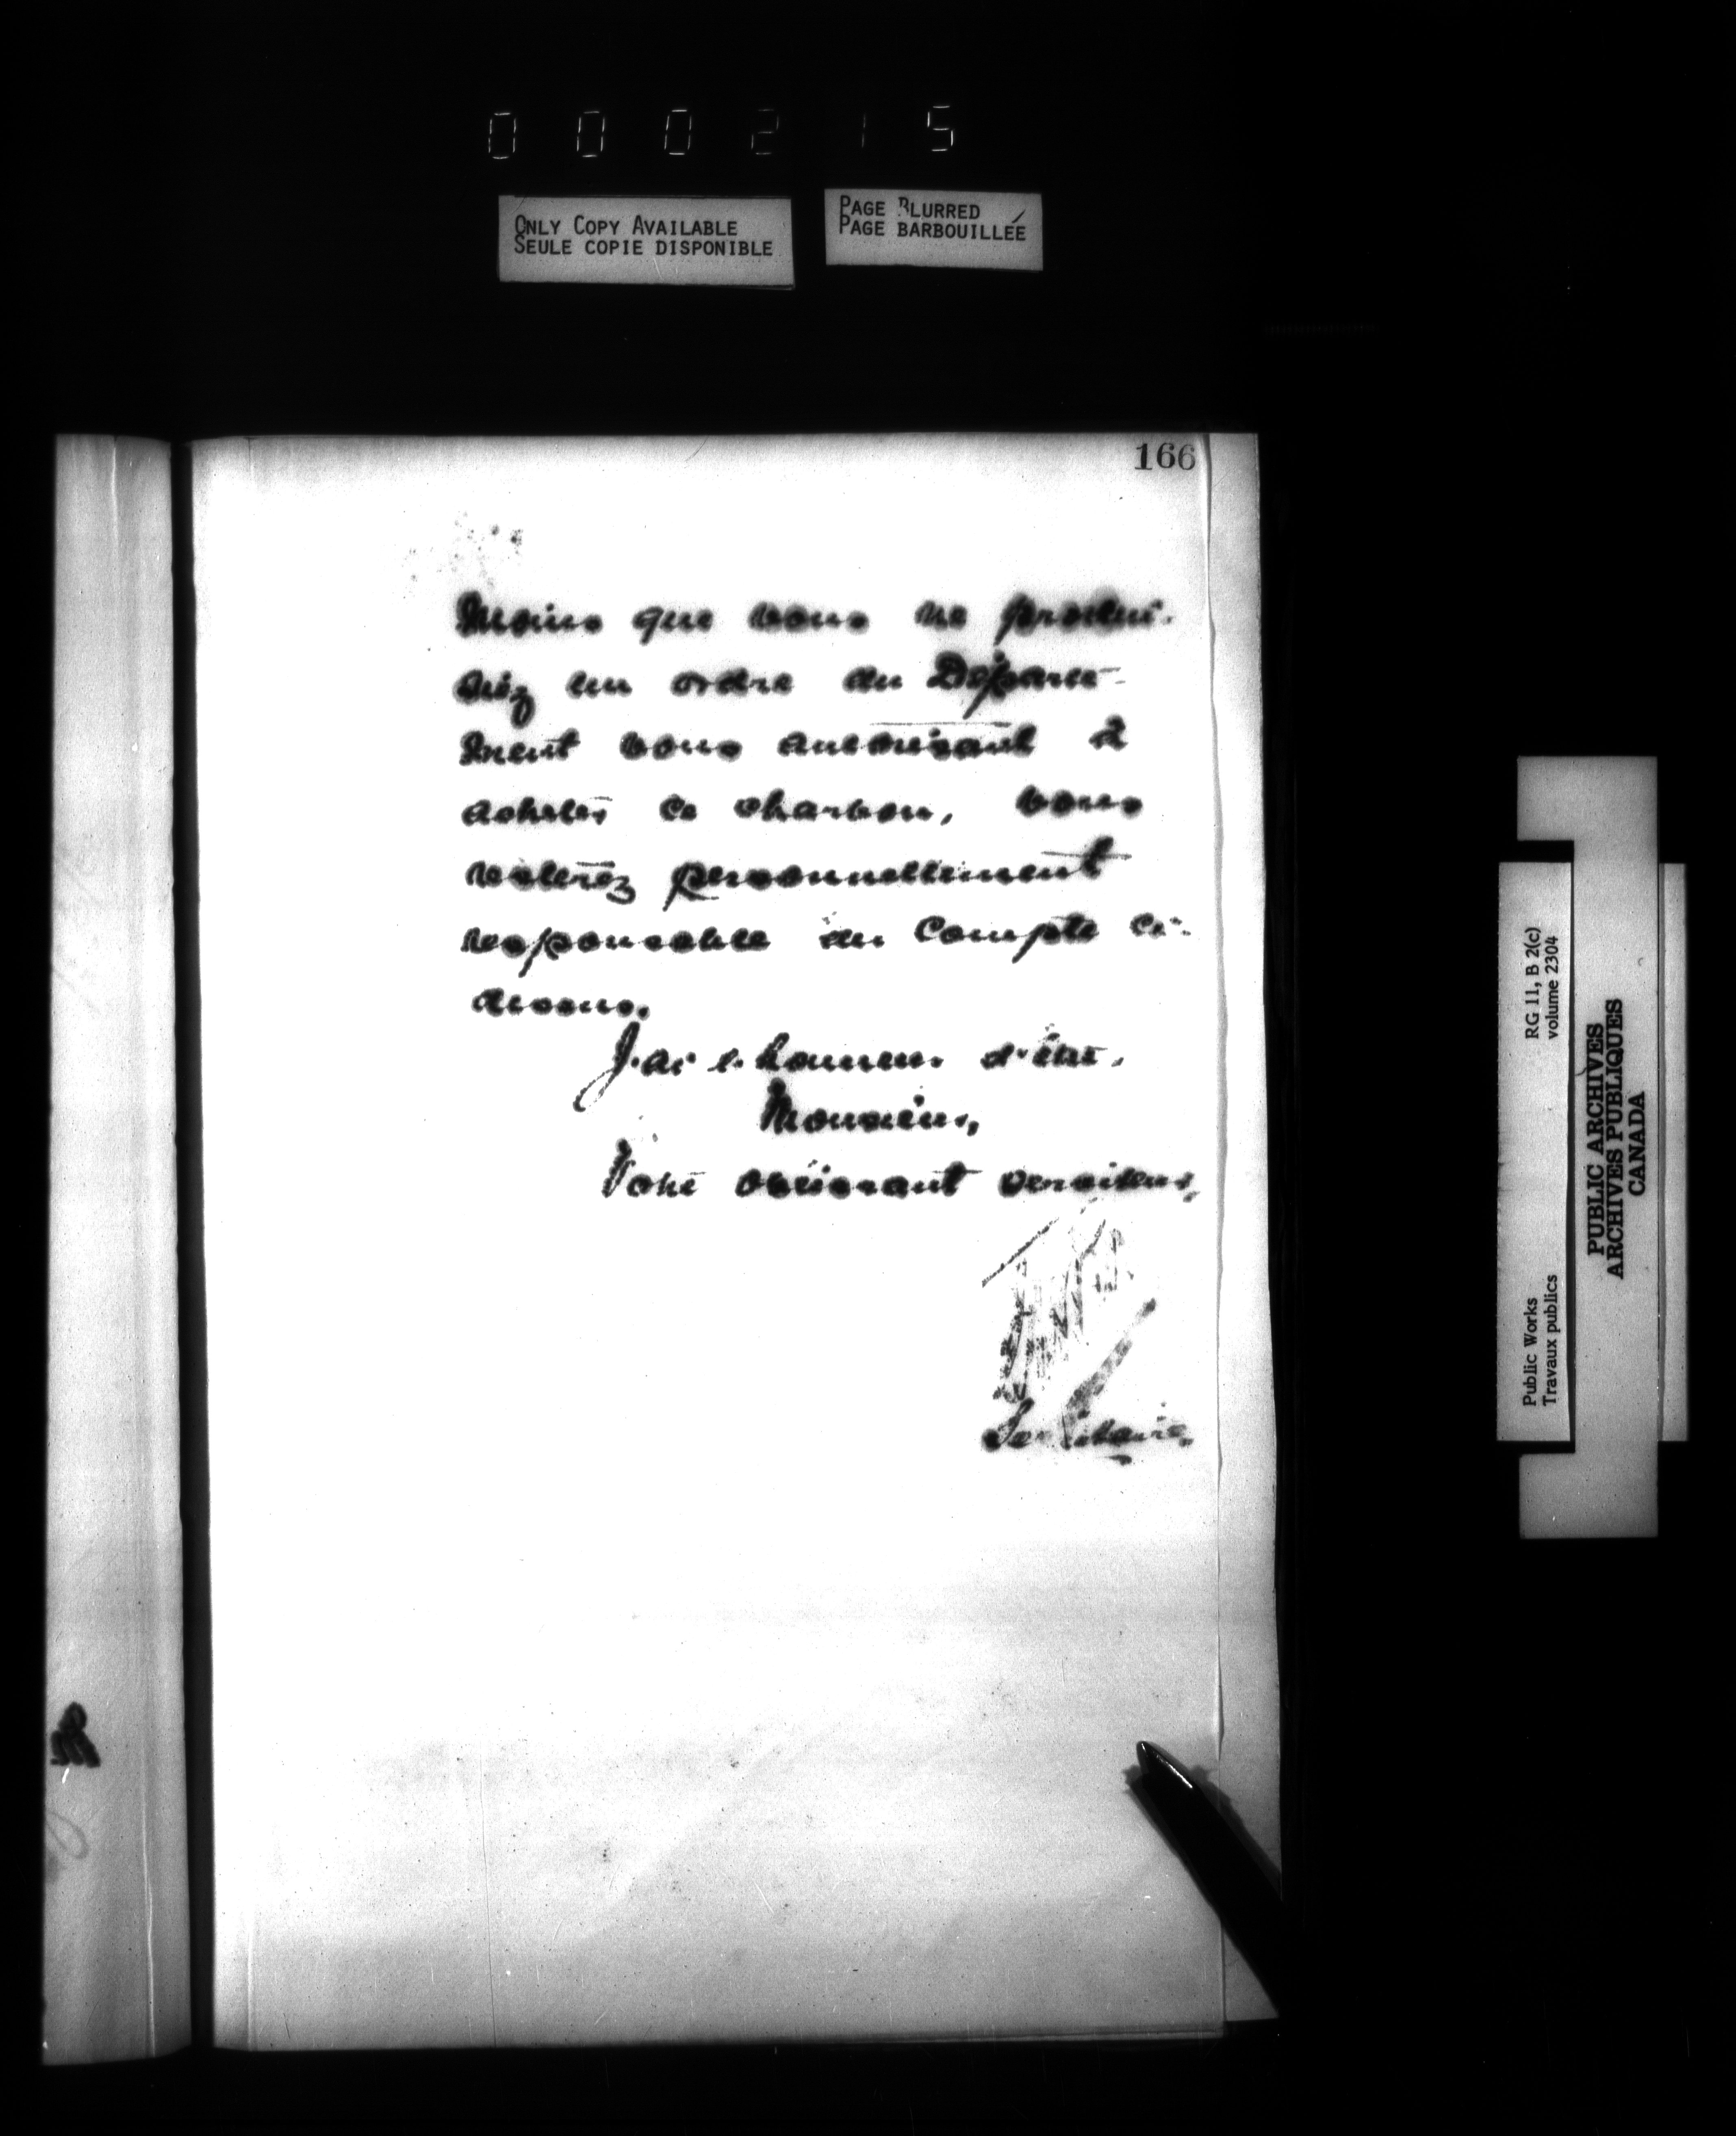 000215
ONLY COPY AVAILABLE
SEULE COPIE DISPONIBLE
PAGE BLURRED
PAGE BARBOUILLÉE
166
moins que vous ne produi-
siez un ordre du Départe-
ment vous autorisant à
acheter ce charbon, vous
resterez personnellement
responsable du compte ci-
dessus.
J'ai l'honneur d'être,
Monsieur,
Votre obéissant serviteur,
Secrétaire.
RG 11, B 2(c)
volume 2304
Public Works
Travaux publics
PUBLIC ARCHIVES
ARCHIVES PUBLIQUES
CANADA